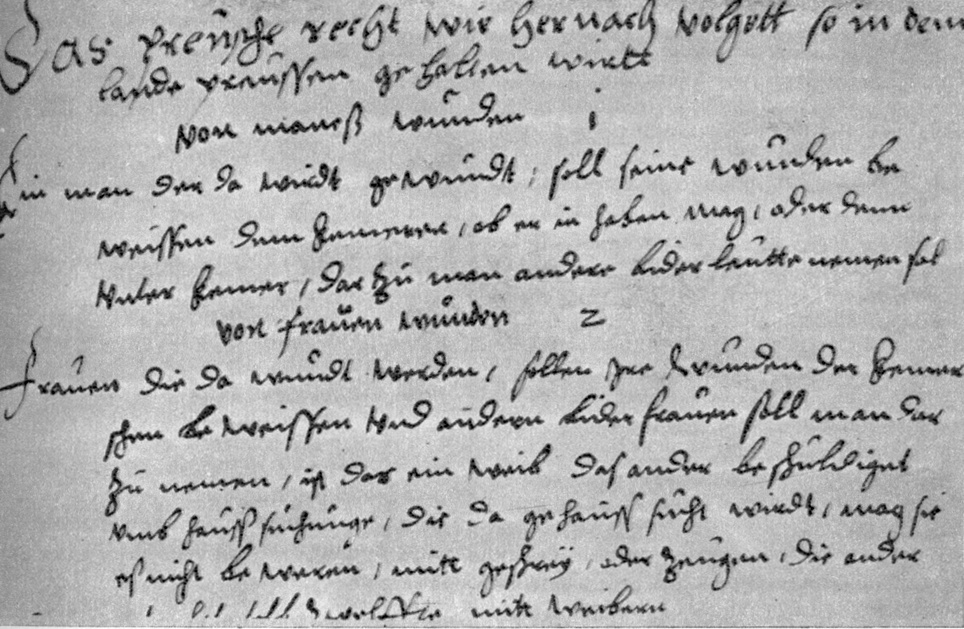 Das preusche recht wie hernach volgett so in dem
lande preussen gehalten wirtt
Von maness wunden 1
Ein man der da wirdt gewundt, soll seine wunden be
weissen dem Kemerer, ob er in haben mag, oder dem
Unter Kemer, dar zu man andere bider leutte nemen sol
Von frauen wunden 2
Frauen die da wundt werden, sollen yre wunden der Kemer
schen beweissen Und andern bider frauen soll man dar
zu nemen, ist das ein weib das ander beschuldiget
Umb hauss suchunge, die da gehauss sucht wirdt, mag sie
es nicht beweren, mitt geschrey, oder zeugen, die ander
mitt weibern